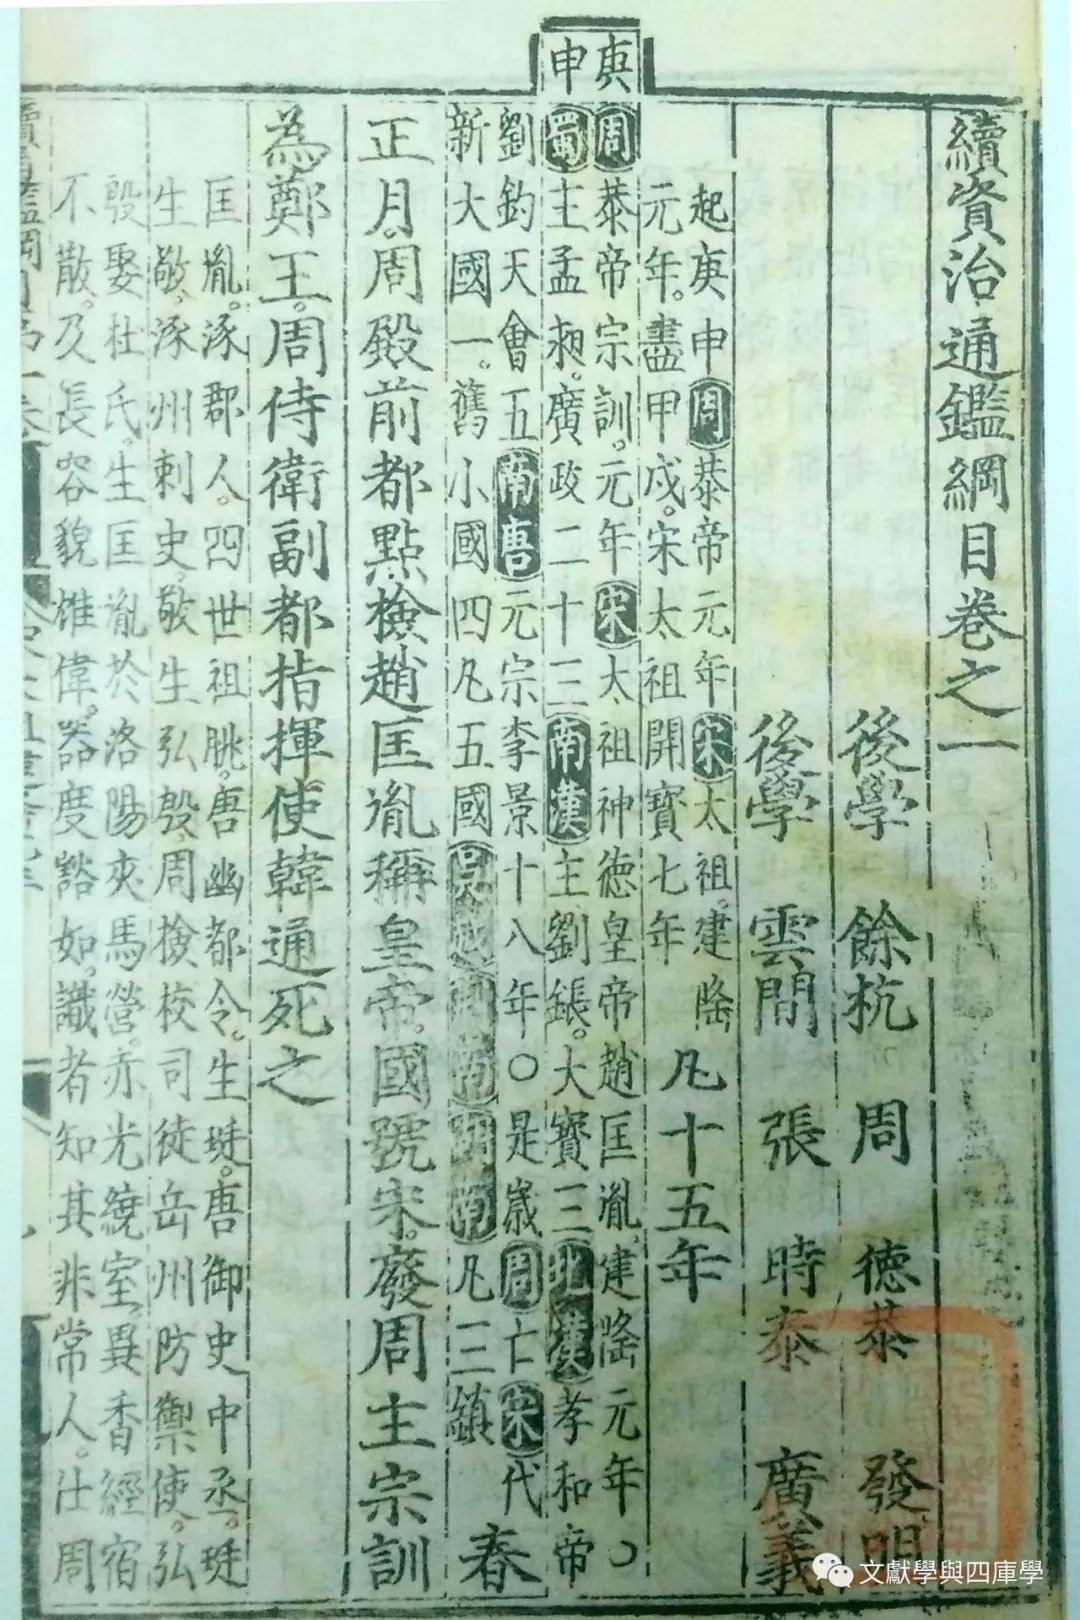 庚申
續資治通鑑綱目卷之一
後學 餘杭 周 德恭 發明
後學 雲間 張 時泰 廣義
起庚申周恭帝元年宋太祖。建隆
元年。盡甲戌。宋太祖開寶七年
凡十五年
周恭帝宗訓。元年宋太祖神德皇帝趙匡胤。建隆元年。○
蜀主孟昶。廣政二十三南漢主劉鋹。大寶三北漢孝和帝
劉鈞天會五南唐元宗李景十八年○是歲周亡宋代
新大國一。舊小國四凡五國吳越荊南湖南凡三鎮
春
正月。周殿前都點檢趙匡胤稱皇帝。國號宋。廢周主宗訓
為鄭王。周侍衛副都指揮使韓通死之
匡胤。涿郡人。四世祖朓。唐幽都令。生珽。唐御史中丞。珽
生敬。涿州刺史。敬生弘殷。周檢校司徒岳州防禦使。弘
殷娶杜氏。生匡胤於洛陽夾馬營。赤光繞室。異香經宿
不散。及長容貌雄偉。器度豁如。識者知其非常人。仕周
文獻學與四庫學